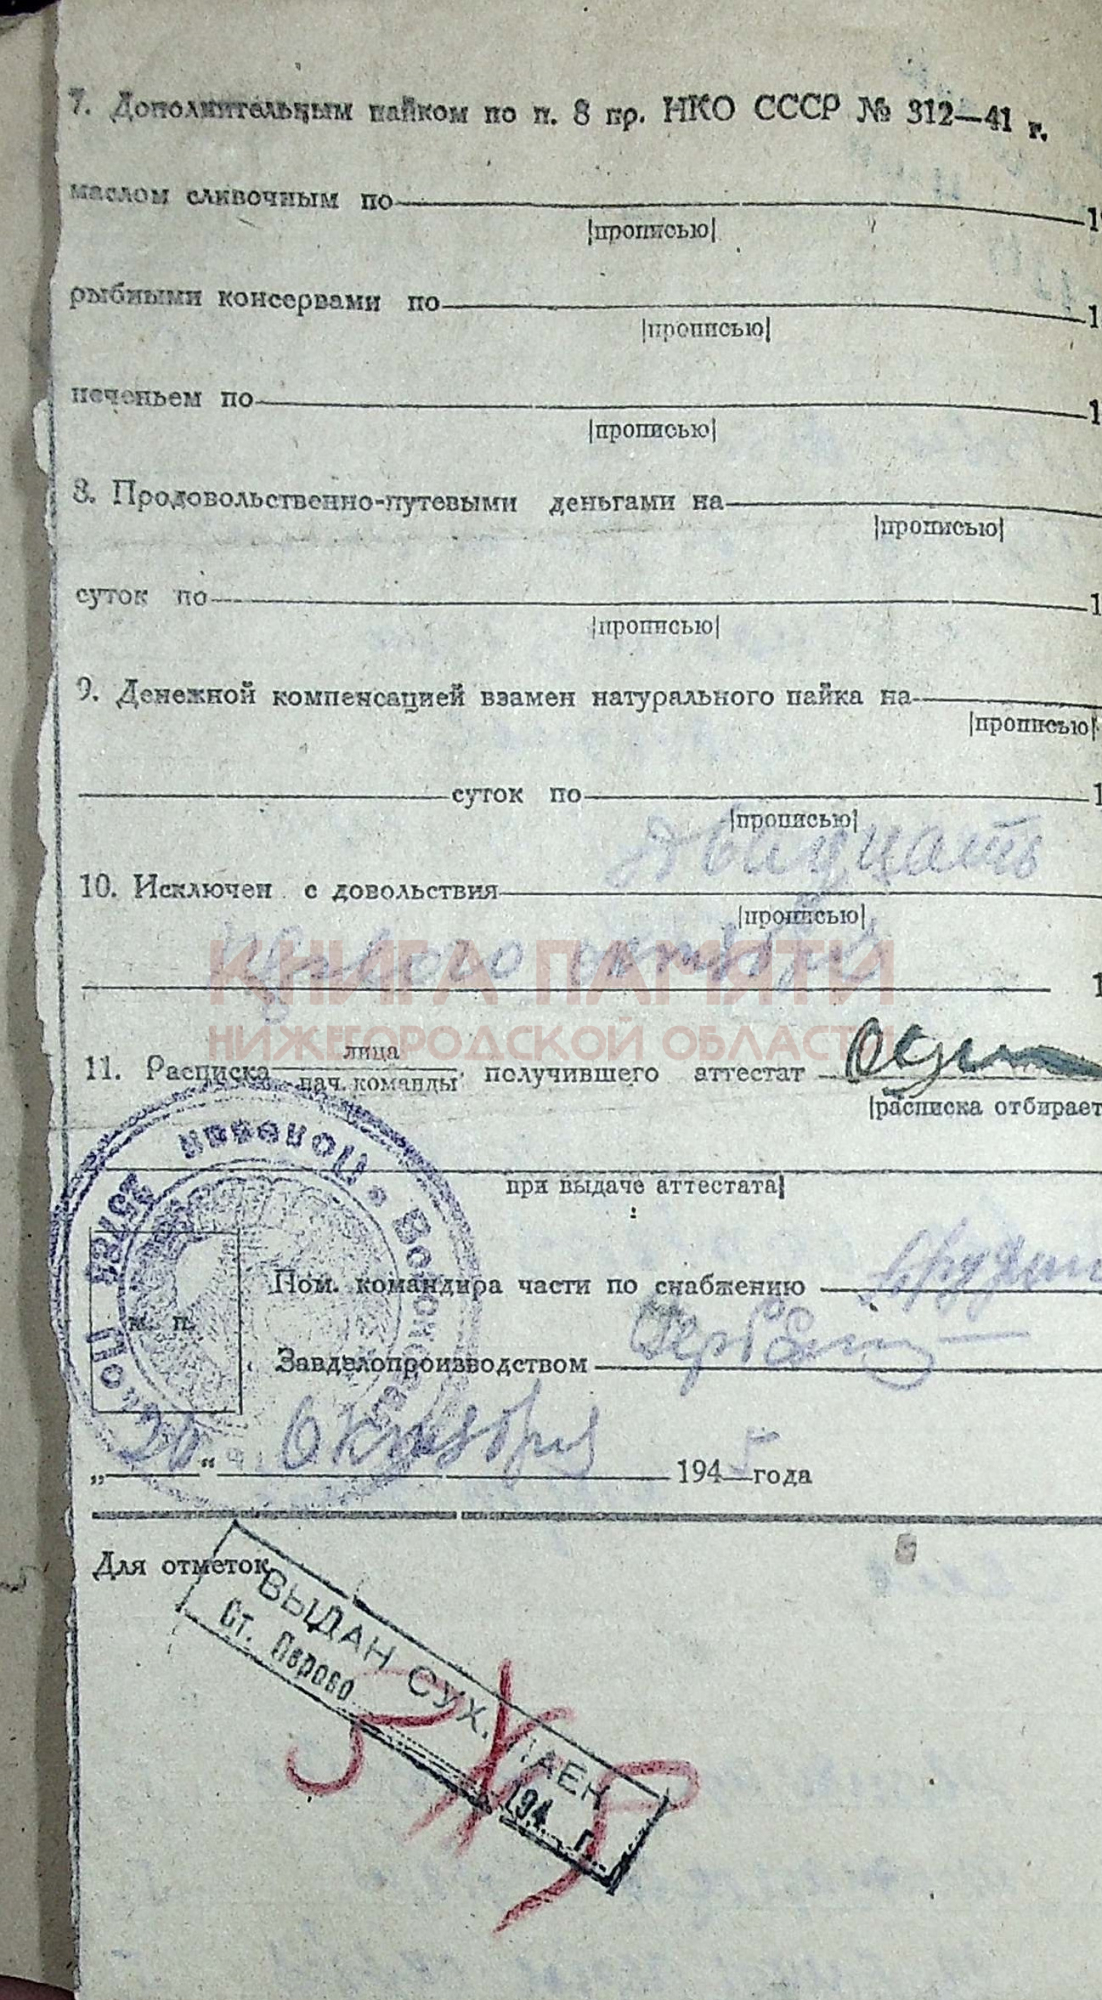 7. Дополнительным пайком по п. 8 пр. НКО СССР № 312—41 г.
маслом сливочным по
|прописью|
рыбными консервами по
|прописью|
печеньем по
|прописью|
8. Продовольственно-путевыми деньгами на
|прописью|
суток по
|прописью|
9. Денежной компенсацией взамен натурального пайка на
|прописью|
суток по
|прописью|
двадцать
10. Исключен с довольствия
|прописью|
первого октября
КНИГА ПАМЯТИ
НИЖЕГОРОДСКОЙ ОБЛАСТИ
лица
11. Расписка получившего аттестат
нач. команды
|расписка отбирает
при выдаче аттестата|
Полевая
м. п.
Пом. командира части по снабжению
Завделопроизводством
„20“ Октября 1945 года
Для отметок
ВЫДАН СУХ. ПАЕН
Ст. Перово
194 г.